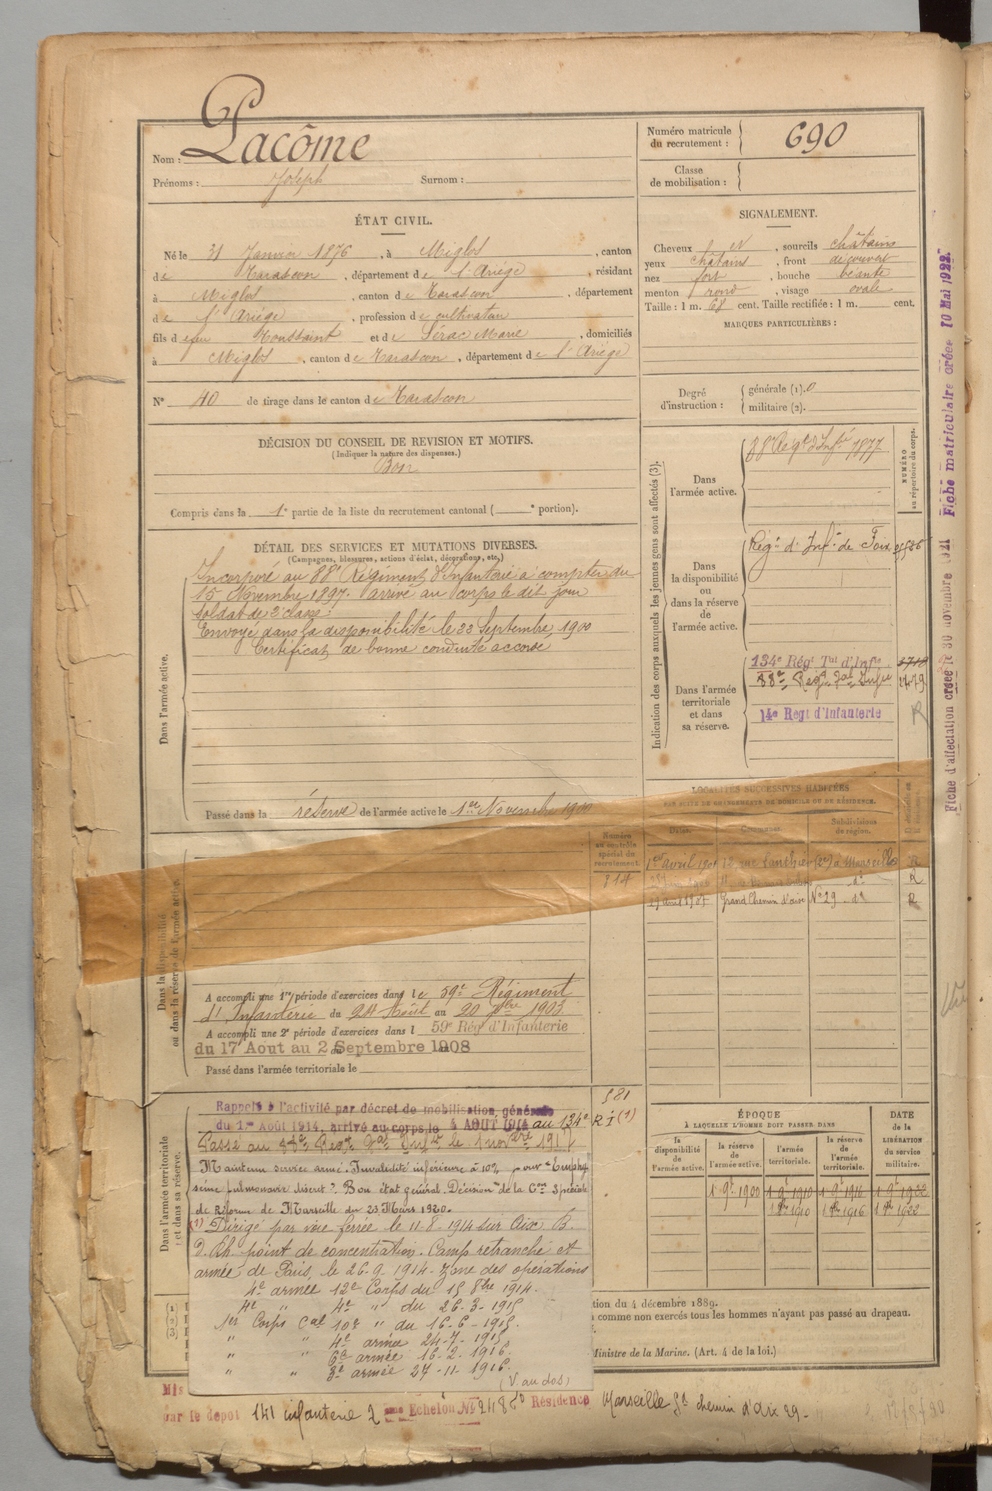 Nom : Lacôme
Prénoms : Joseph Surnom :
Numéro matricule du recrutement : 690
Classe de mobilisation :
ÉTAT CIVIL.
Né le 31 Janvier 1876, à Miglos, canton
de Tarascon, département de l'Ariège, résidant
à Miglos, canton de Tarascon, département
de l'Ariège, profession de cultivateur
fils de feu Toussaint et de Sérac Marie, domiciliés
à Miglos, canton de Tarascon, département de l'Ariège
N° 40 de tirage dans le canton de Tarascon
SIGNALEMENT.
Cheveux N, sourcils châtains
yeux châtains, front découvert
nez fort, bouche béante
menton rond, visage ovale
Taille : 1 m. 68 cent. Taille rectifiée : 1 m. cent.
MARQUES PARTICULIÈRES :
Degré d'instruction : générale (1). 0
militaire (2).
DÉCISION DU CONSEIL DE REVISION ET MOTIFS.
(Indiquer la nature des dispenses.)
Bon
Compris dans la 1e partie de la liste du recrutement cantonal ( e portion).
DÉTAIL DES SERVICES ET MUTATIONS DIVERSES.
(Campagnes, blessures, actions d'éclat, décorations, etc.)
Dans l'armée active.
Incorporé au 88e Régiment d'Infanterie à compter du
15 Novembre 1897. Arrivé au corps le dit jour
Soldat de 2e classe.
Envoyé dans la disponibilité le 22 Septembre 1900
Certificat de bonne conduite accordé
Passé dans la réserve de l'armée active le 1er Novembre 1900
Indication des corps auxquels les jeunes gens sont affectés (3).
NUMÉRO au répertoire du corps.
Dans l'armée active.
88e Régt d'Infie 1877
Dans la disponibilité ou dans la réserve de l'armée active.
Régt d'Infie de Foix
Dans l'armée territoriale et dans sa réserve.
134e Régt Tal d'Infie
88e Régt Tal Infie 2479
14e Regt d'Infanterie
R
LOCALITÉS SUCCESSIVES HABITÉES
PAR SUITE DE CHANGEMENTS DE DOMICILE OU DE RÉSIDENCE.
Dates. Communes. Subdivisions de région.
Marseille R
d° R
Grand Chemin d'aix N° 29 d° R
Numéro au contrôle spécial du recrutement.
814
Dans la disponibilité ou dans la réserve de l'armée active.
A accompli une 1re période d'exercices dans le 59e Régiment
d'Infanterie du 24 Août au 20 7bre 1903
A accompli une 2e période d'exercices dans l 59e Rég d'Infanterie
du 17 Aout au 2 Septembre 1908
Passé dans l'armée territoriale le
581
Dans l'armée territoriale et dans sa réserve.
Rappelé à l'activité par décret de mobilisation générale
du 1er Août 1914, arrivé au corps le 4 AOUT 1914 au 134e R I (1)
Passé au 88e Régt Tal Infie le 1 novbre 1917
Maintenu service armé. Invalidité inférieure à 10% pour "Emphy
sème pulmonaire discret". Bon état général. Décision de la Con Spéciale
de Réforme de Marseille du 23 Mars 1920.
(1) Dirigé par voie ferrée le 11-8-1914 sur Aix B.
D. Rh. point de concentration. Camp retranché et
armée de Paris, le 26-9-1914. Zone des opérations
4e armée 12e Corps du 15 8bre 1914.
4e " 4e " du 26-3-1915
1er Corps Cal 10e " du 16-6-1915.
" " 4e armée 24-7-1915
" " 6e armée 16-2-1916.
" " 3e armée 27-11-1916.
(V au dos)
ÉPOQUE
À LAQUELLE L'HOMME DOIT PASSER DANS
DATE de la LIBÉRATION du service militaire.
la disponibilité de l'armée active. la réserve de l'armée active. l'armée territoriale. la réserve de l'armée territoriale.
1 9e 1900 1 9e 1910 1 9e 1916 1 9e 1922
1 8bre 1910 1 8bre 1916 1 8bre 1922
tion du 4 décembre 1889.
comme non exercés tous les hommes n'ayant pas passé au drapeau.
Ministre de la Marine. (Art. 4 de la loi.)
Mis
par le depot 141 infanterie 2 eme Echelon N° Résidence Marseille Gd chemin d'aix 29.
Fiche d'affectation créée le 30 novembre 1921 Fiche matriculaire créée 10 Mai 1922.